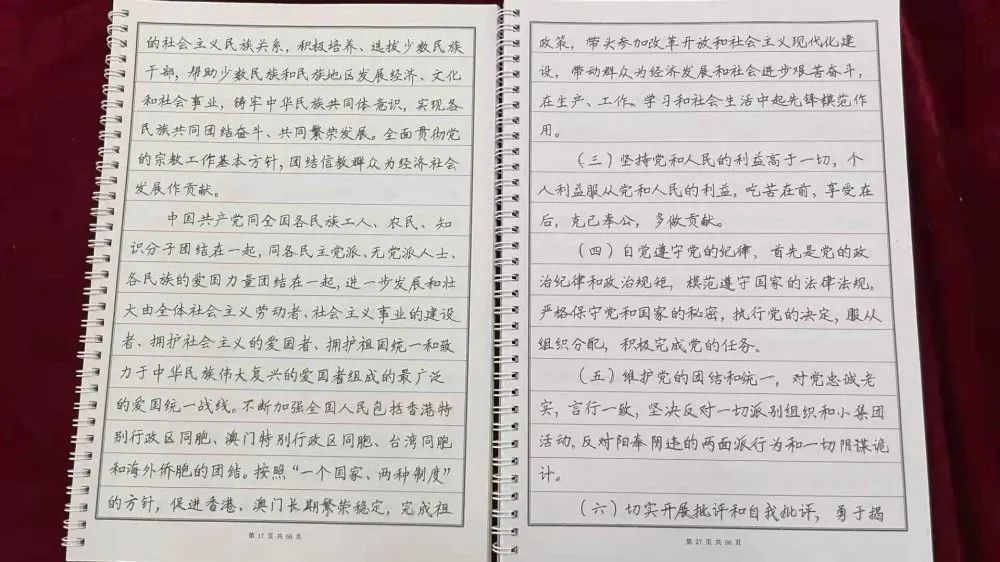 的社会主义民族关系，积极培养、选拔少数民族
干部，帮助少数民族和民族地区发展经济、文化
和社会事业，铸牢中华民族共同体意识，实现各
民族共同团结奋斗、共同繁荣发展。全面贯彻党
的宗教工作基本方针，团结信教群众为经济社会
发展作贡献。
中国共产党同全国各民族工人、农民、知
识分子团结在一起，同各民主党派、无党派人士、
各民族的爱国力量团结在一起，进一步发展和壮
大由全体社会主义劳动者、社会主义事业的建设
者、拥护社会主义的爱国者、拥护祖国统一和致
力于中华民族伟大复兴的爱国者组成的最广泛
的爱国统一战线。不断加强全国人民包括香港特
别行政区同胞、澳门特别行政区同胞、台湾同胞
和海外侨胞的团结。按照“一个国家、两种制度”
的方针，促进香港、澳门长期繁荣稳定，完成祖
第 17 页 共 66 页
政策，带头参加改革开放和社会主义现代化建
设，带动群众为经济发展和社会进步艰苦奋斗，
在生产、工作、学习和社会生活中起先锋模范作
用。
（三）坚持党和人民的利益高于一切，个
人利益服从党和人民的利益，吃苦在前，享受在
后，克己奉公，多做贡献。
（四）自觉遵守党的纪律，首先是党的政
治纪律和政治规矩，模范遵守国家的法律法规，
严格保守党和国家的秘密，执行党的决定，服从
组织分配，积极完成党的任务。
（五）维护党的团结和统一，对党忠诚老
实，言行一致，坚决反对一切派别组织和小集团
活动，反对阳奉阴违的两面派行为和一切阴谋诡
计。
（六）切实开展批评和自我批评，勇于揭
第 27 页 共 66 页